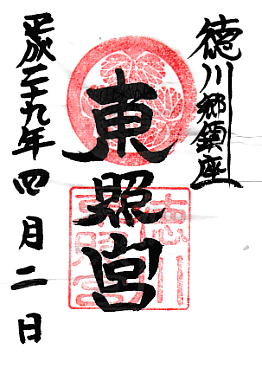 徳川郷鎮座
東照宮
平成二十九年四月二日